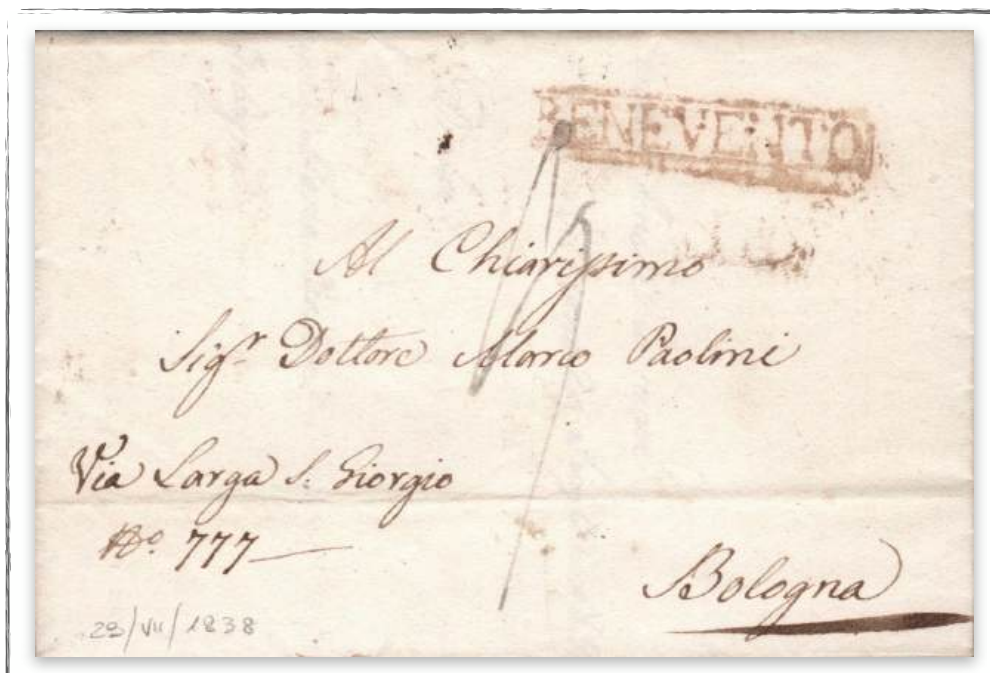 BENEVENTO
Al Chiarissimo
Sigr. Dottore Marco Paolini
Via Larga S. Giorgio
No. 777
Bologna
29/VII/1838